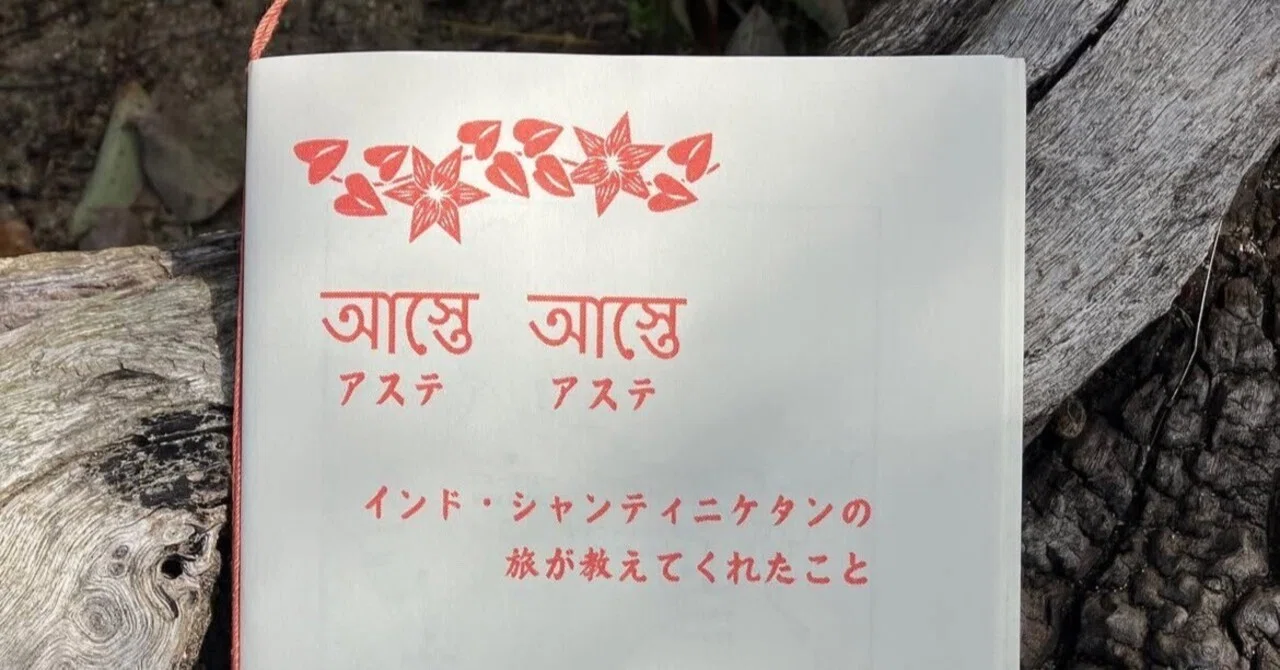 আস্তে আস্তে
アステ アステ
インド・シャンティニケタンの
旅が教えてくれたこと